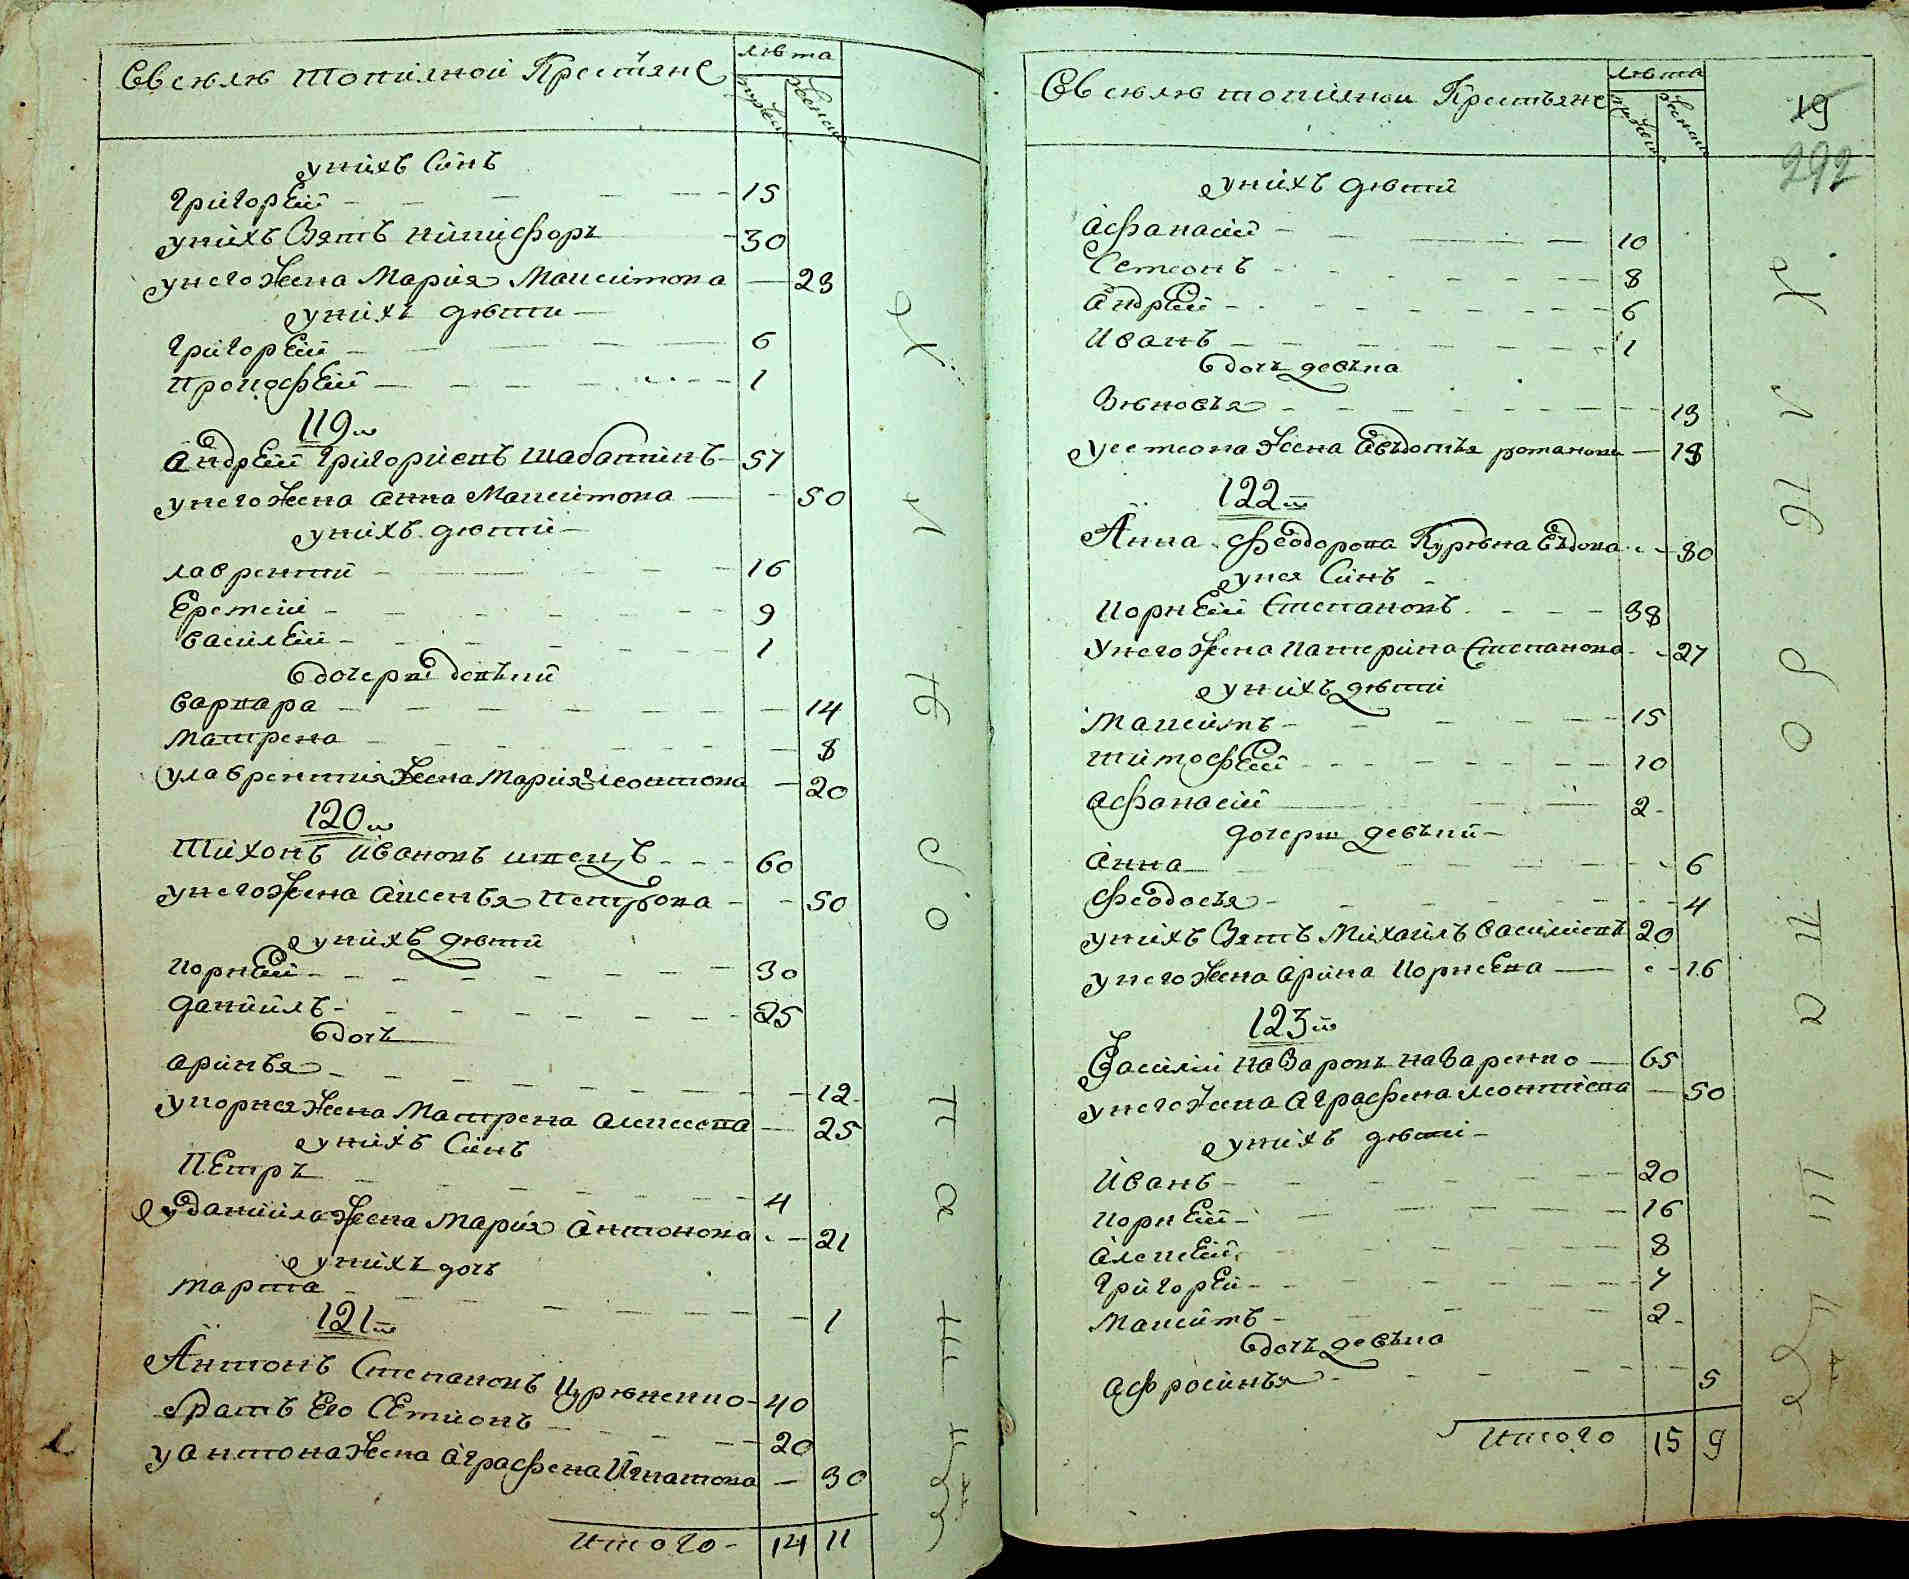 Всѣлѣ топилной Крестяне
лѣта
мужеск
женск
унихъ Синъ
Григорей 15
унихъ Зятъ никифоръ 30
унего жена Мария Макситова 23
унихъ дѣти
Григорей 6
прокофей 1
119м
Андрей Григориевъ шабатинъ 57
унего жена анна Макситова 50
унихъ дѣти
лаврентий 16
Еремей 9
василей 1
дочери девъки
варвара 14
матрена 8
улаврентия жена Мария леонтова 20
120м
Тихонъ ивановъ швецъ 60
унего жена аксенъя петрова 50
унихъ дѣти
корней 30
даниилъ 25
дочъ
аринъя 12
укорнея жена Матрена алексеева 25
унихъ Синъ
петръ 4
уданиила жена Мария антонова 21
унихъ дочъ
марта 1
121м
Антонъ Степановъ курѣненко 40
братъ Его Сетионъ 20
уантона жена аграфена игнатова 30
итого 14 11
Всѣлѣ топилнои Крестъяне
лѣта
19
292
унихъ дѣти
афанасий 10
Сетеонъ 8
андрей 6
иванъ 1
дочъ девъка
Зѣновъя 13
усетеона жена Евъдотъя романова 18
122м
Анна феодорова Курѣна въдова 80
унея Синъ
корней Степановъ 38
унего жена катерина Степанова 27
унихъ дѣти
Максимъ 15
тимофей 10
афанасий 2
дочери девъки
анна 6
феодосъя 4
унихъ Зятъ Михаилъ василиевъ 20
унего жена арина корнеева 16
123м
Василий назаровъ назаренко 65
унего жена аграфена леонтиева 50
унихъ дѣти
иванъ 20
корней 16
алексей 8
григорей 7
Максимъ 2
дочъ девъка
афросинъя 5
итого 15 9